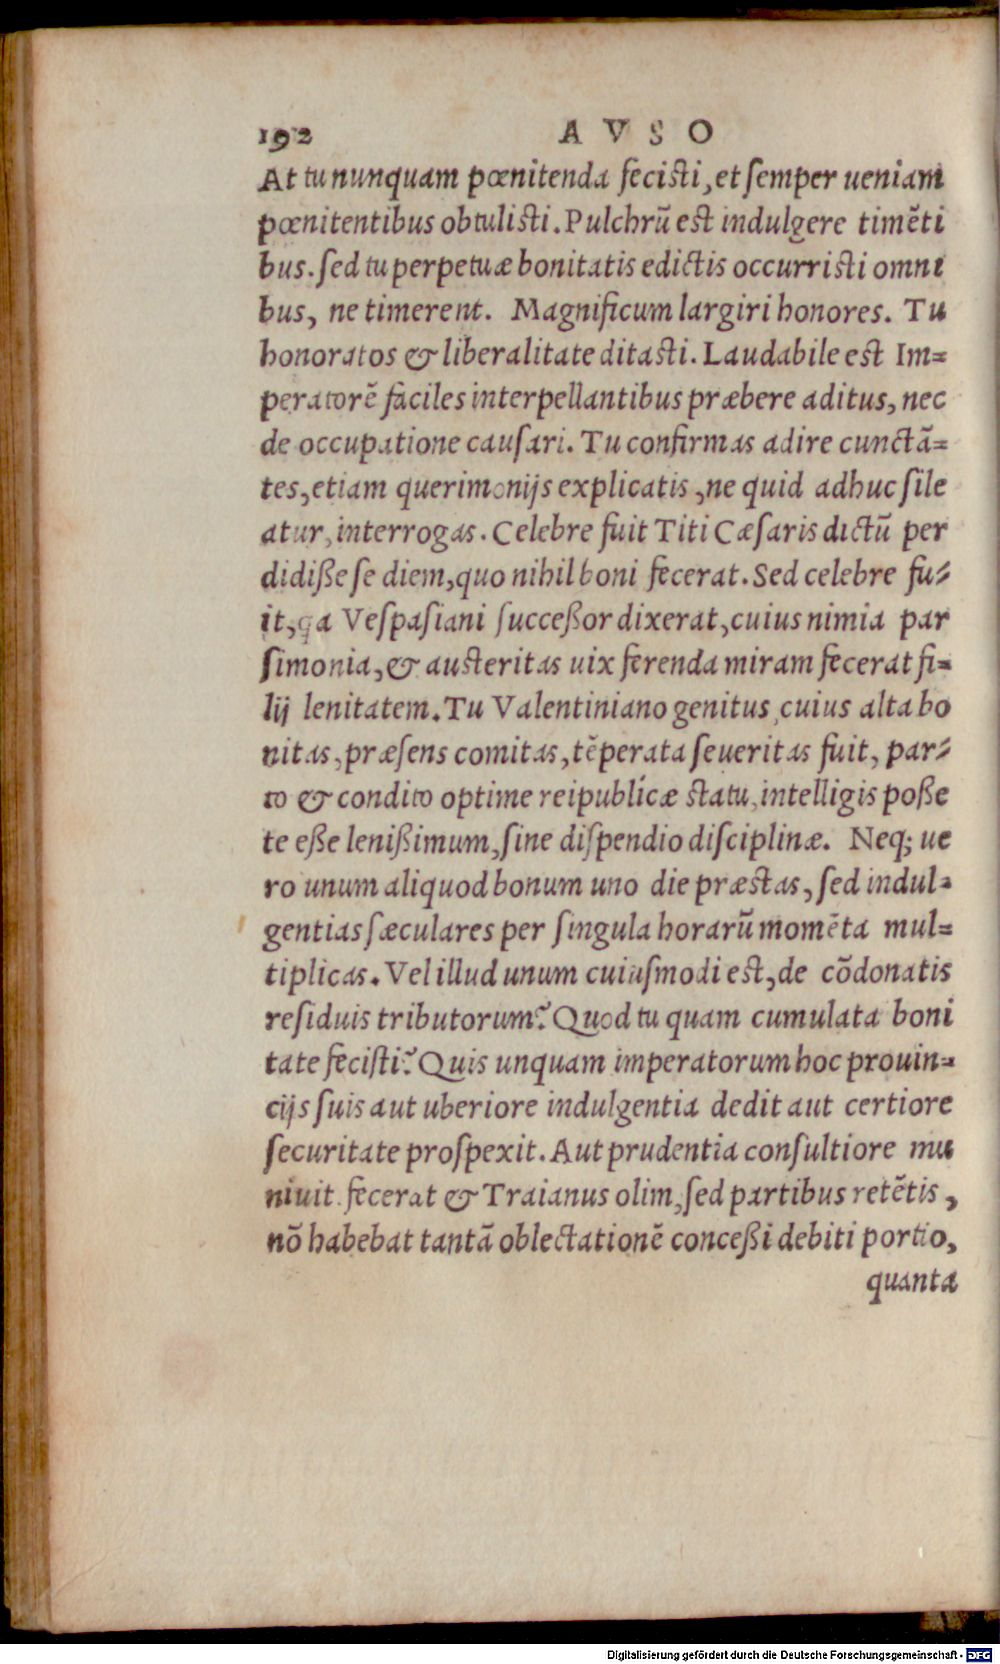 192 AVSO
At tu nunquam pœnitenda fecisti, et ſemper ueniam
pœnitentibus obtulisti. Pulchrū est indulgere timēti
bus. ſed tu perpetuæ bonitatis edictis occurristi omni
bus, ne timerent. Magnificum largiri honores. Tu
honoratos & liberalitate ditasti. Laudabile est Im=
peratorē faciles interpellantibus præbere aditus, nec
de occupatione cauſari. Tu confirmas adire cunctā=
tes, etiam querimonijs explicatis, ne quid adhuc ſile
atur, interrogas. Celebre fuit Titi Cæſaris dictū per
didiße ſe diem, quo nihil boni fecerat. Sed celebre fu=
it, qa Veſpaſiani ſucceßor dixerat, cuius nimia par
ſimonia, & austeritas uix ferenda miram fecerat fi=
lij lenitatem. Tu Valentiniano genitus, cuius alta bo
nitas, præſens comitas, tēperata ſeueritas fuit, par=
to & condito optime reipublicæ statu, intelligis poße
te eße lenißimum, ſine diſpendio diſciplinæ. Neq; ue
ro unum aliquod bonum uno die præstas, ſed indul=
gentias ſæculares per ſingula horarū momēta mul=
tiplicas. Vel illud unum cuiuſmodi est, de cōdonatis
reſiduis tributorum? Quod tu quam cumulata boni
tate feciſti? Quis unquam imperatorum hoc prouin=
cijs ſuis aut uberiore indulgentia dedit aut certiore
ſecuritate proſpexit. Aut prudentia conſultiore mu
niuit. fecerat & Traianus olim, ſed partibus retētis,
nō habebat tantā oblectationē conceßi debiti portio,
quanta
Digitalisierung gefördert durch die Deutsche Forschungsgemeinschaft - DFG